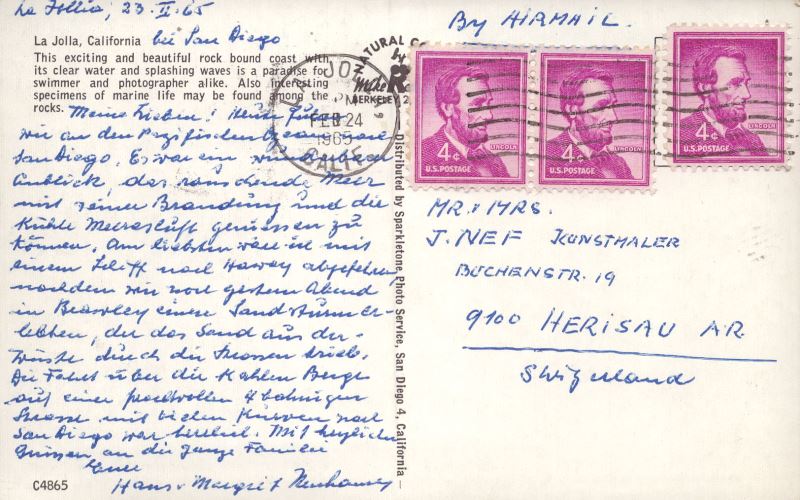 La Jollia, 23. II. 65
La Jolla, California bei San Diego
This exciting and beautiful rock bound coast with
its clear water and splashing waves is a paradise for
swimmer and photographer alike. Also interesting
specimens of marine life may be found among the
rocks.
Meine Lieben! Heute
wir an den Pazifischen Ozean nach
San Diego. Es war ein wunderbarer
Anblick, das rauschende Meer
mit seiner Brandung und die
Kühle Meeresluft geniessen zu
können. Am liebsten wäre ich mit
einem Schiff nach Haway abgefahren
nachdem wir vorgestern Abend
in Brawley einen Sandsturm er-
lebten, der das Sand aus der
Wüste durch die Strassen trieb.
Die Fahrt über die Kahlen Berge
auf einer prachtvollen 4 bahnigen
Strasse mit vielen Kurven nach
San Diego war herrlich. Mit herzlichen
Grüssen an die ganze Familie
Euer
Hans u Margrit
C4865
Distributed by Sparkletone, Photo Service, San Diego 4, California
By AIRMAIL.
LA JOLLA
PM
FEB 24
1965
CALIF
4¢ LINCOLN
U.S. POSTAGE
4¢ LINCOLN
U.S. POSTAGE
4¢ LINCOLN
U.S. POSTAGE
MR. & MRS.
J. NEF KUNSTMALER
BUCHENSTR. 19
9100 HERISAU AR.
Switzerland